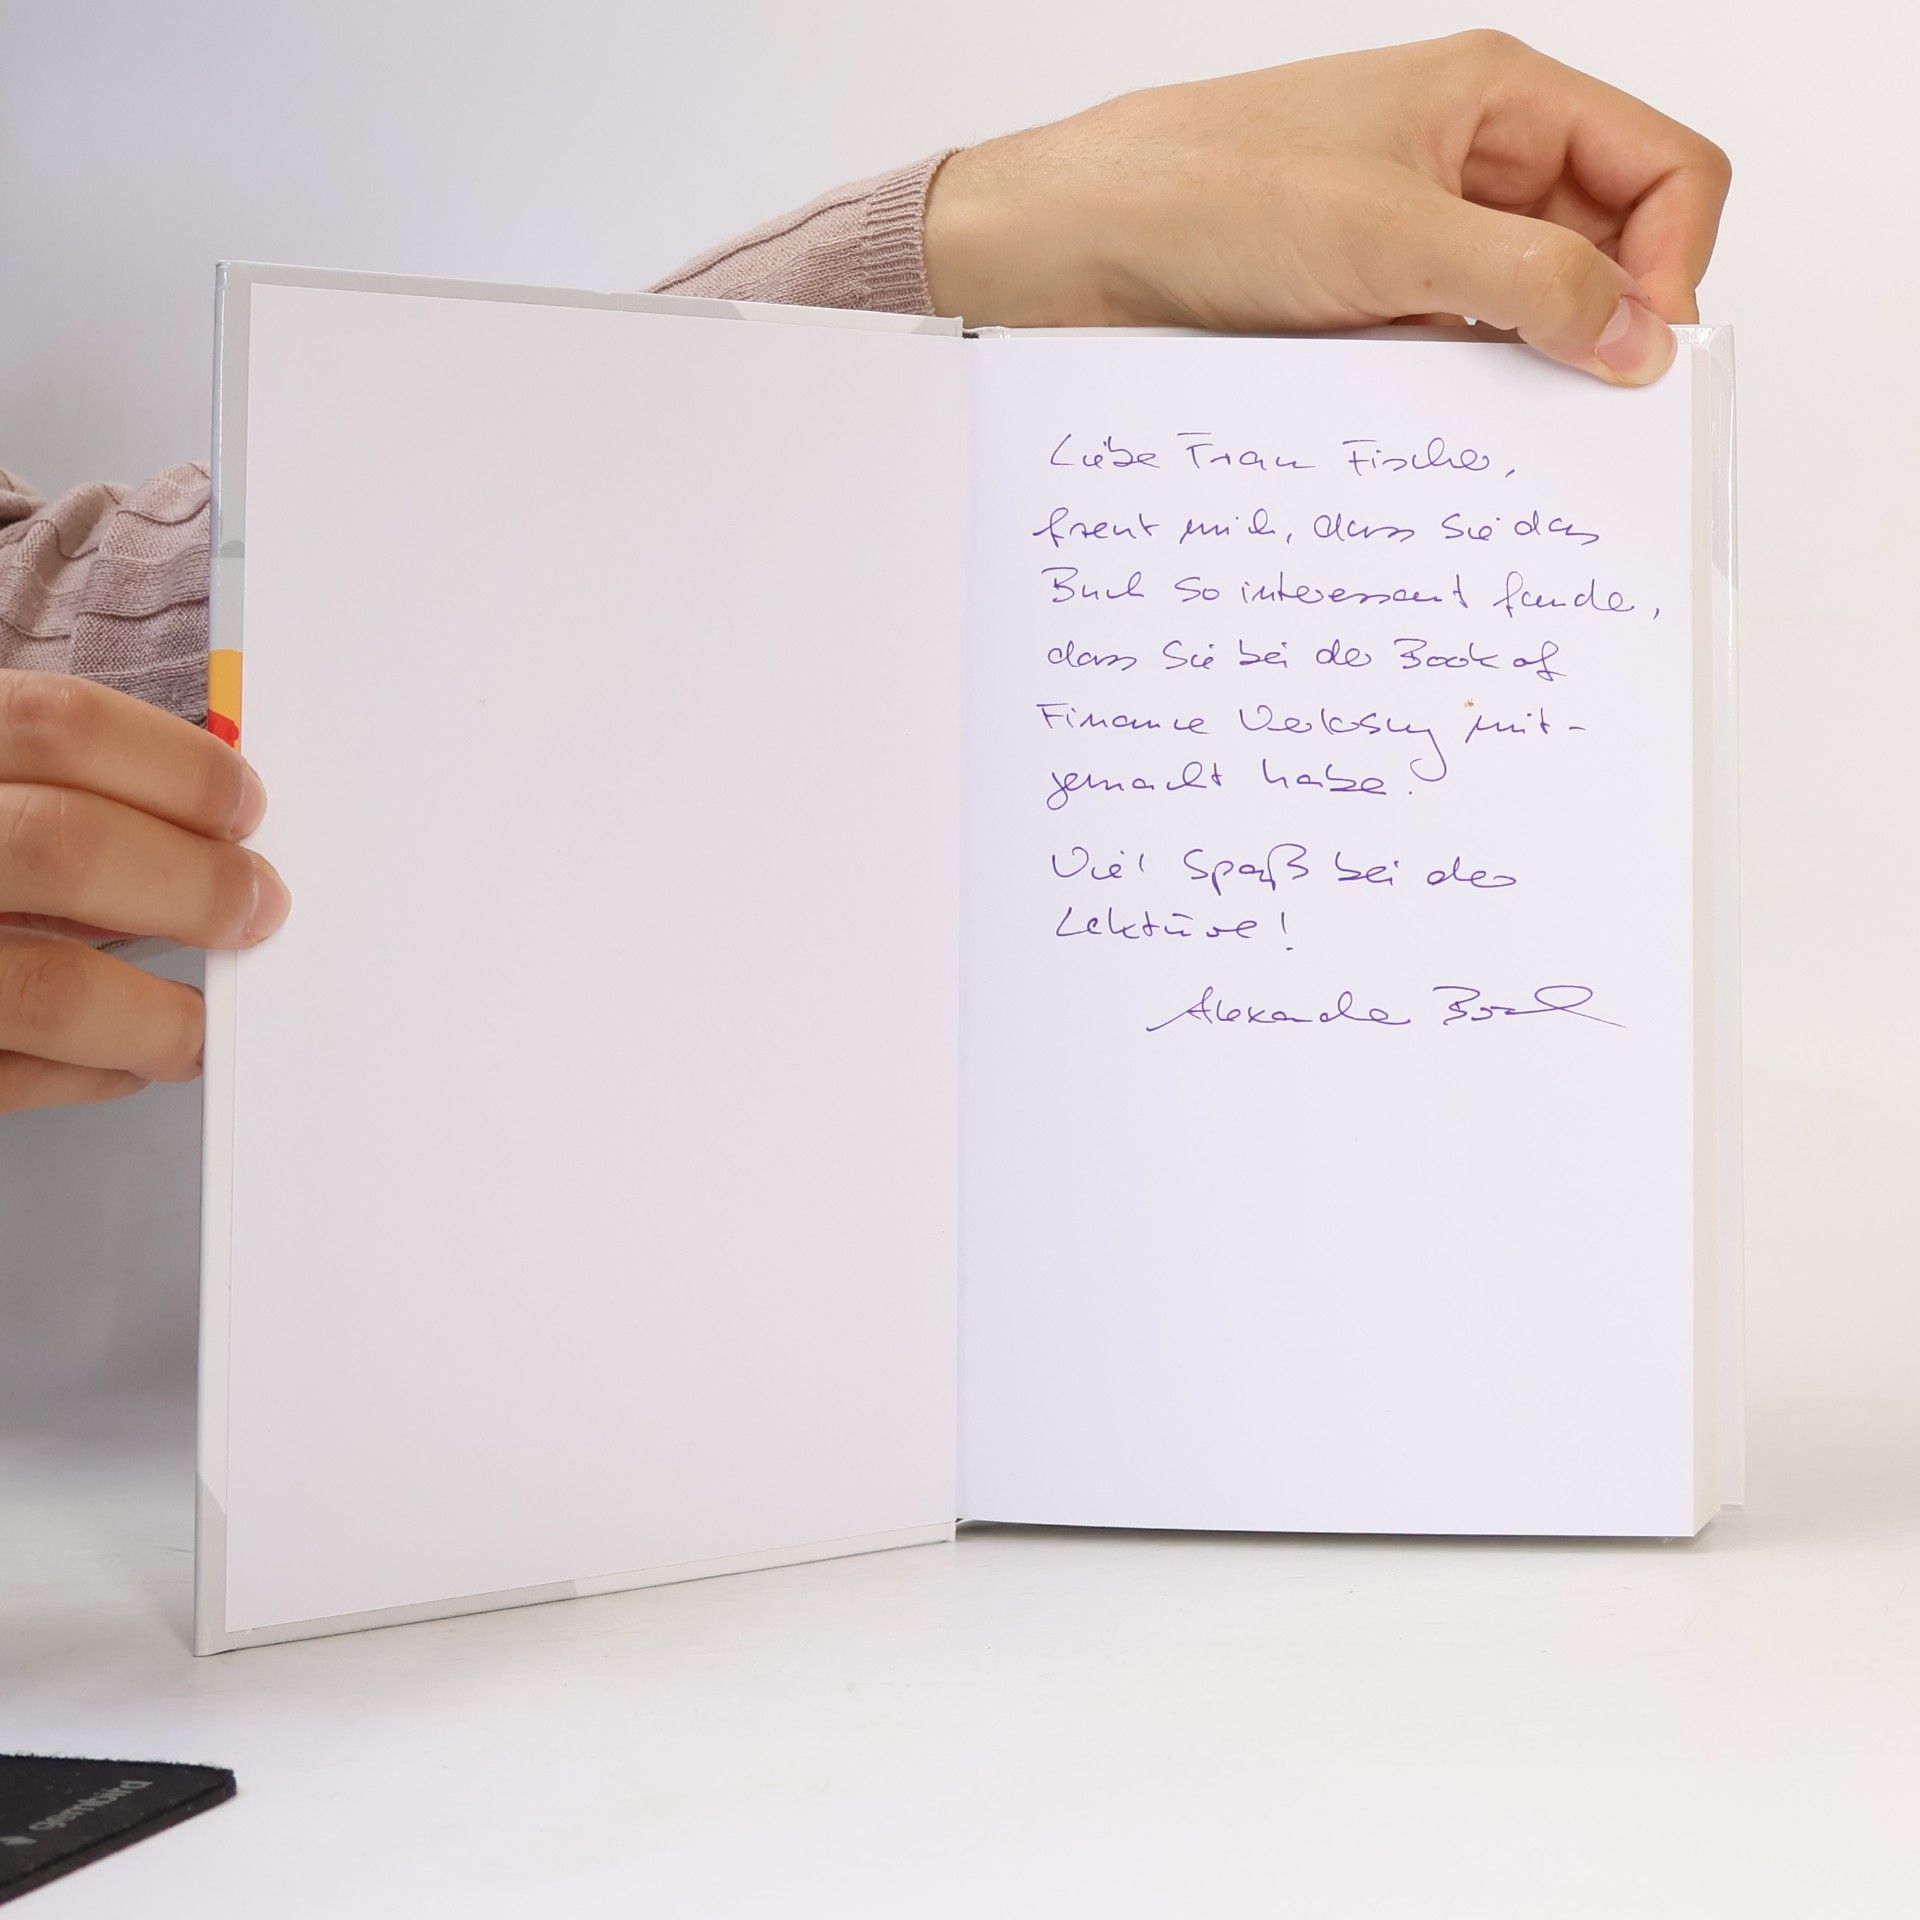 Liebe Frau Fischer,
freut mich, dass Sie das
Buch so interessant fanden,
dass Sie bei der Book of
Finance Verlosung mit-
gemacht haben.
Viel Spaß bei der
Lektüre!
Alexander
gembird